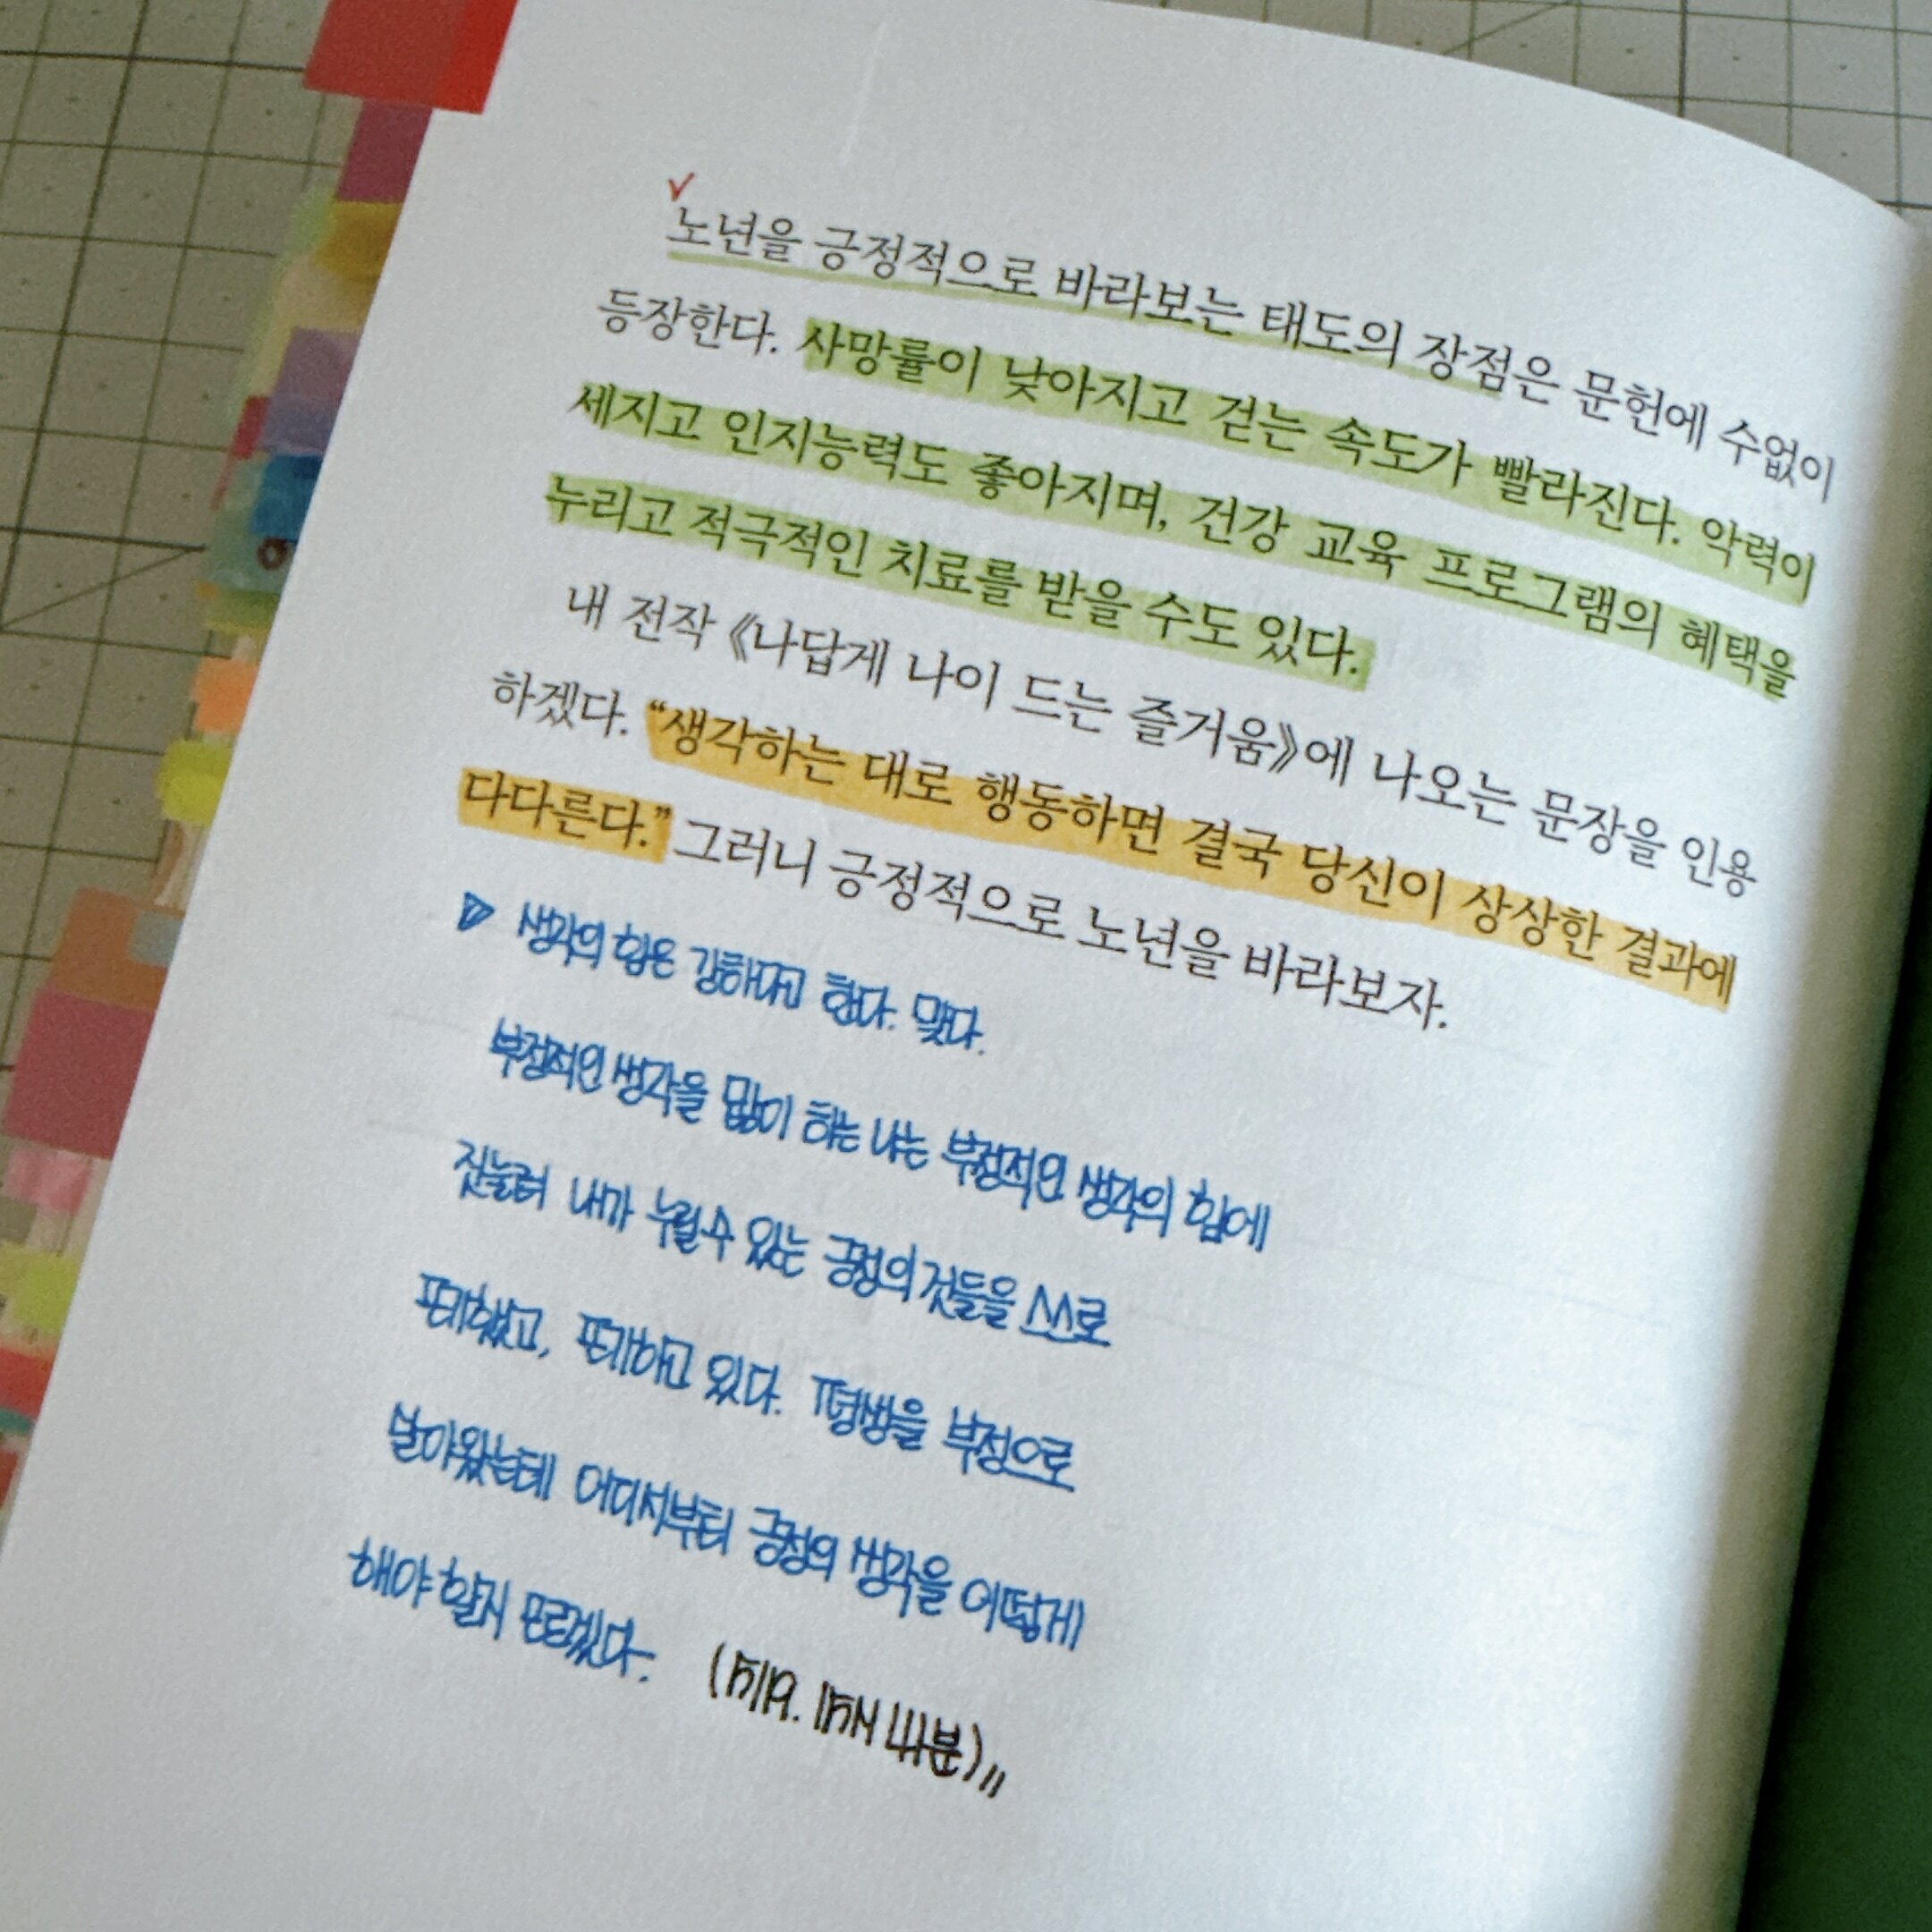 노년을 긍정적으로 바라보는 태도의 장점은 문헌에 수없이
등장한다. 사망률이 낮아지고 걷는 속도가 빨라진다. 악력이
세지고 인지능력도 좋아지며, 건강 교육 프로그램의 혜택을
누리고 적극적인 치료를 받을 수도 있다.
내 전작 《나답게 나이 드는 즐거움》에 나오는 문장을 인용
하겠다. “생각하는 대로 행동하면 결국 당신이 상상한 결과에
다다른다.” 그러니 긍정적으로 노년을 바라보자.
생각의 힘은 강하다고 한다. 맞다.
부정적인 생각을 많이 하는 나는 부정적인 생각의 힘에
짓눌려 내가 누릴 수 있는 긍정의 것들을 스스로
포기했고, 포기하고 있다. 평생을 부정으로
살아왔는데 어디서부터 긍정의 생각을 어떻게
해야 할지 모르겠다.